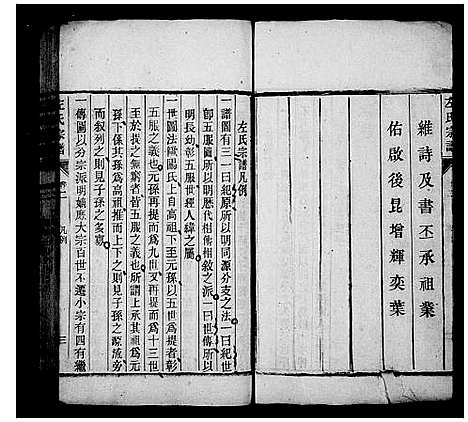 左氏宗譜
維詩及書丕承祖業
佑啟後昆增輝奕葉
左氏宗譜凡例
一譜圖有三一曰紀原所以明同源分支之法一曰紀世
卽五服圖所以明歷代相傳相敘之派一曰世傳所以
明長幼彰五服世經人緯之屬
一世圖法歐陽氏上自高祖下至元孫以五世提者彰
五服之義也元孫再提而爲九世又再提而爲十三世
至於我之無窮者皆五服之義也所謂上承其祖爲元
孫下係其孫爲高祖推而上下之則見子孫之源流旁
而叙列之則見子孫之多寡
一傳圖以分宗派明嫡庶大宗百世不遷小宗有四有繼
左氏宗譜
凡例
三